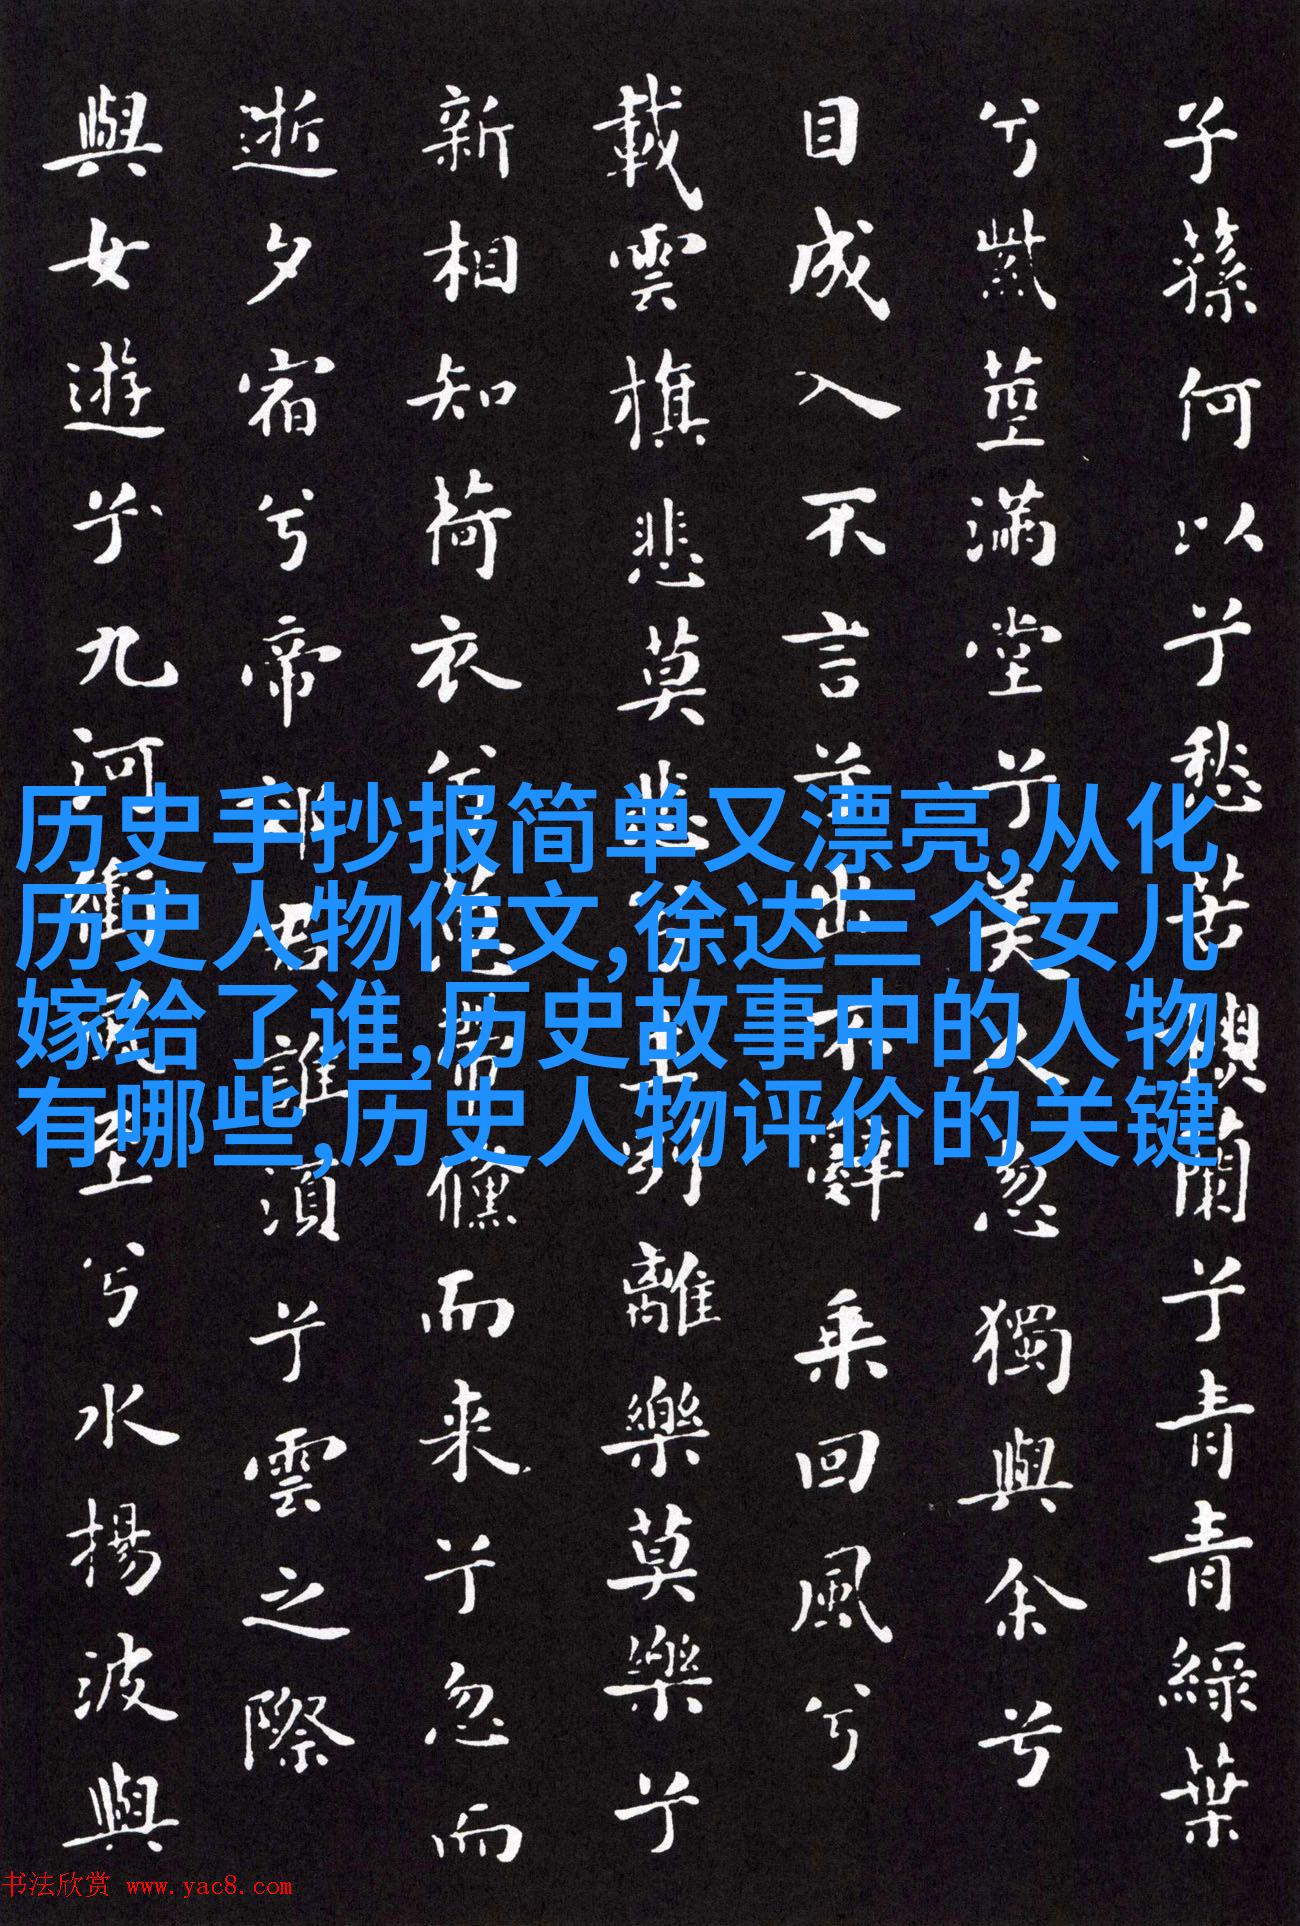 子蓀何以兮愁苦蘭兮青青綠葉
兮紫莖滿堂兮美人忽獨與余兮
目成入不言兮出不辭乘回風兮
載雲旗悲莫悲兮生別離樂莫樂兮
新相知荷衣兮蕙帶儵而来兮忽而
逝夕宿兮帝郊君誰須兮雲之際
與女遊兮九河衝風至兮水揚波與
历史手抄报简单又漂亮,从化
历史人物作文,徐达三个女儿
嫁给了谁,历史故事中的人物
有哪些,历史人物评价的关键
书法欣赏 www.yac8.com